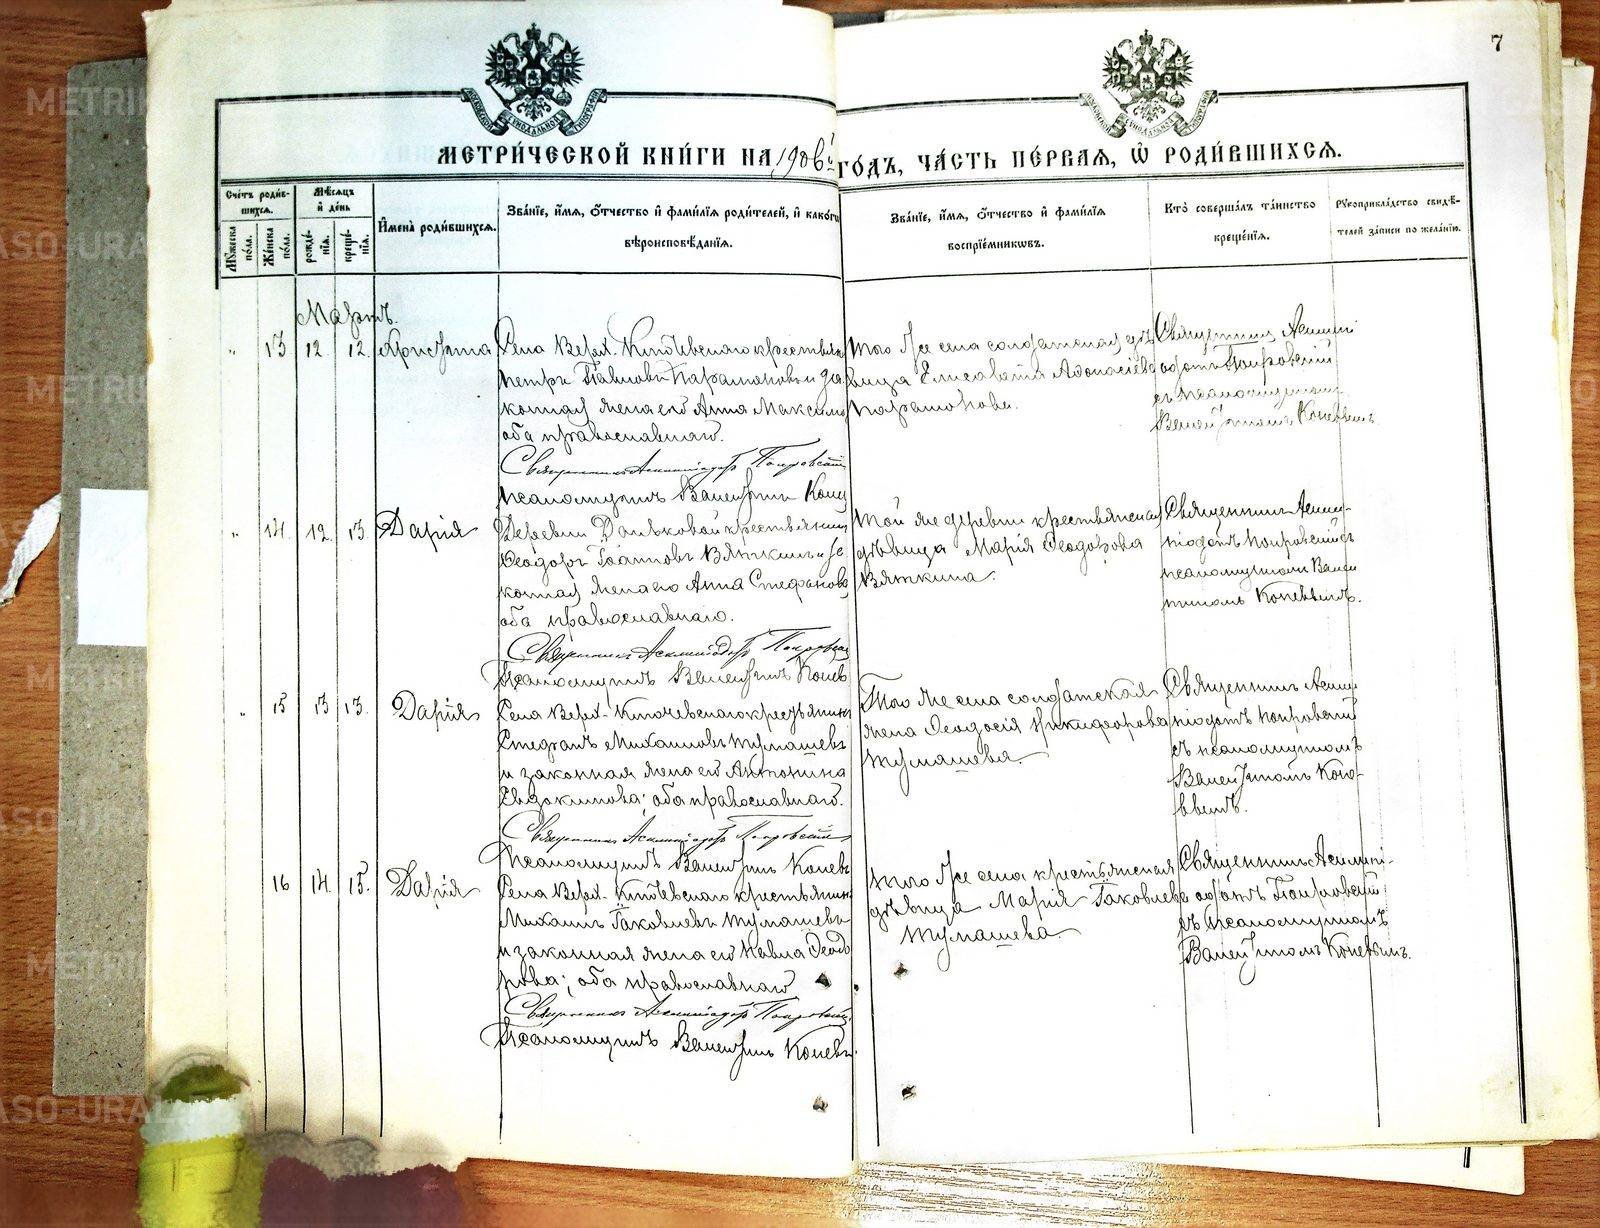 7
МЕТРИ́ЧЕСКОЙ КНИ́ГИ НА 1906й ГО́ДЪ, ЧА́СТЬ ПЕ́РВАЯ, Ѡ РОДИ́ВШИХСѦ.
Сче́тъ роди́вшихсѧ.
Мꙋ́жеска по́ла.
Же́нска по́ла.
Мѣ́сѧцъ и҆ де́нь
рожде́нїѧ.
креще́нїѧ.
И҆мена̀ роди́вшихсѧ.
Зва́нїе, и҆́мѧ, ѻ҆́тчество и҆ фами́лїѧ роди́телей, и҆ како́гѡ
вѣроисповѣ́данїѧ.
Зва́нїе, и҆́мѧ, ѻ҆́тчество и҆ фами́лїѧ
воспрїе́мникѡвъ.
Кто̀ соверша́лъ та́инство
креще́нїѧ.
Рꙋкоприкла́дство свидѣ́-
телей за́писи по жела́нїю.
Мартъ.
„ 13 12. 12.
Села Верх-Ключевскаго крестьян
Петръ Павловъ Парамоновъ и за-
конная жена его Анна Максимо
оба православнаго.
Священникъ Асклипіодотъ Покровскій
Псаломщикъ Валентинъ Конев
Того же села солдатская дѣ-
вица Елисавета Афонасіева
Парамонова.
Священник Асклипі
одотъ Покровскій
съ псаломщикомъ
Валентиномъ Коневымъ
„ 14. 12. 13. Дарія
Деревни крестьянинъ
Феодоръ Іоанновъ Вяткинъ и за-
конная жена его Анна Стефанова
оба православнаго.
Священникъ Асклипіодотъ Покровскій
Псаломщикъ Валентинъ Конев
Той же деревни крестьянская
дѣвица Марія Феодорова
Вяткина.
Священникъ Аскли-
піодотъ Покровскій съ
псаломщикомъ Вален
тиномъ Коневымъ.
„ 15 13 13. Дарія
Села Верх-Ключевскаго крестьянинъ
Стефанъ Михаиловъ Тумашевъ
и законная жена его Антонина
Евдокимова; оба православнаго.
Священникъ Асклипіодотъ Покровскій
Псаломщикъ Валентинъ Коневъ
Того же села солдатская
жена Феодосія Никифорова
Тумашева.
Священникъ Аскли
піодотъ Покровскій
съ псаломщикомъ
Валентиномъ Коне-
вымъ.
16 14. 15. Дарія
Села Верх-Ключевскаго крестьянинъ
Михаилъ Іаковлевъ Тумашевъ
и законная жена его Феодо
рова; оба православнаго
Священникъ Асклипіодотъ Покровскій
Псаломщикъ Валентинъ Коневъ
Того же села крестьянская
дѣвица Марія Іаковлева
Тумашева.
Священникъ Асклипі-
одотъ Покровскій
съ псаломщикомъ
Валентиномъ Коневымъ.